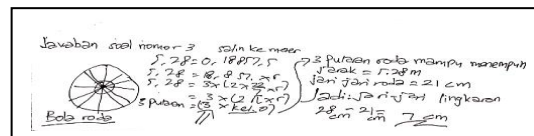 Javaban soal nomor 3 salin ke meer
5,28=0,18857,5
5,28=18,857,xr
5,28=3x(2x22/7xr)
=3x(2πxr)
3 putaran=(3xkel⊙)
Bola roda
3 putaran roda mampu menempuh
jarak=5.28m
jari-jari roda=21 cm
Jadi jari-jari lingkaran
28cm-21cm=7cm